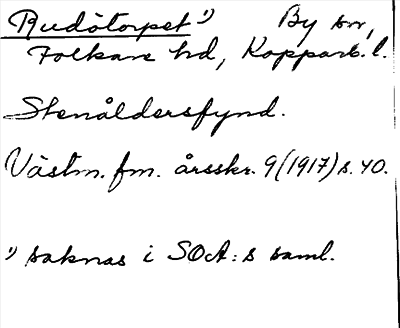 Rudötorpet 1) By sn,
Folkare hd, Kopparb. l.
Stenåldersfynd.
Västm. fm. årsskr. 9 (1917) s. 40.
1) saknas i SOA:s saml.